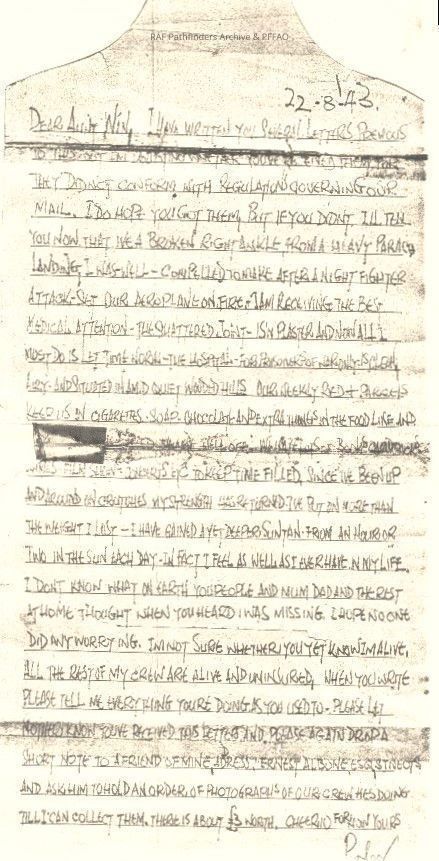 RAF Pathfinders Archive & PFFAO
22-8-43.
DEAR AUNT WIN, I HAVE WRITTEN YOU SEVERAL LETTERS PREVIOUS
TO THIS BUT THEM FOR
THEY DIDN'T CONFORM WITH REGULATION GOVERNING OUR
MAIL. I DO HOPE YOU GOT THEM, BUT IF YOU DIDN'T I'LL TELL
YOU NOW THAT I'VE A BROKEN RIGHT ANKLE FROM A HEAVY PARACH
LANDING, I WAS WELL - COMPELLED TO MAKE AFTER A NIGHT FIGHTER
ATTACK - SET OUR AEROPLANE ON FIRE - I AM RECEIVING THE BEST
MEDICAL ATTENTION - THE SHATTERED JOINT - IS IN PLASTER AND NOW ALL I
MUST DO IS LET TIME WORK - THE HOSPITAL - FOR PRISONER OF WAR ONLY - IS CLEAN,
AIRY - AND SITUATED IN AMID QUIET WOODED HILLS OUR WEEKLY RED + PARCELS
KEEP US IN CIGARETTES, SOAP, CHOCOLATE AND EXTRA THINGS IN THE FOOD LINE AND
FILM SHOW - TO KEEP TIME FILLED. SINCE I'VE BEEN UP
AND AROUND ON CRUTCHES MY STRENGTH HAS RETURNED I'VE PUT ON MORE THAN
THE WEIGHT I LOST - I HAVE GAINED A YET DEEPER SUNTAN - FROM AN HOUR OR
TWO IN THE SUN EACH DAY - IN FACT I FEEL AS WELL AS I EVER HAVE IN MY LIFE.
I DON'T KNOW WHAT ON EARTH YOU PEOPLE AND MUM DAD AND THE REST
AT HOME THOUGHT WHEN YOU HEARD I WAS MISSING. I HOPE NO ONE
DID ANY WORRYING. I'M NOT SURE WHETHER YOU YET KNOW I'M ALIVE,
ALL THE REST OF MY CREW ARE ALIVE AND UNINJURED, WHEN YOU WRITE
PLEASE TELL ME EVERYTHING YOU'RE DOING AS YOU USED TO - PLEASE LET
MOTHER KNOW YOU'VE RECEIVED THIS LETTER AND PLEASE AGAIN DROP A
SHORT NOTE TO A FRIEND OF MINE ADRESS: ERNEST ALBONE ESQ
AND ASK HIM TO HOLD AN ORDER OF PHOTOGRAPHS OF OUR CREW HE'S DOING
TILL I CAN COLLECT THEM. THERE IS ABOUT £3 WORTH. CHEERIO FOR NOW YOURS